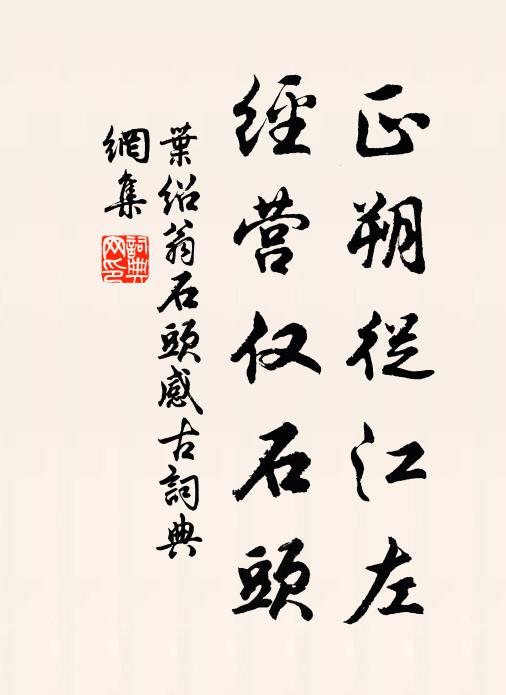 正朔從江左
經营仅石頭
葉紹翁石頭感古詞典
網集
詞典
网印